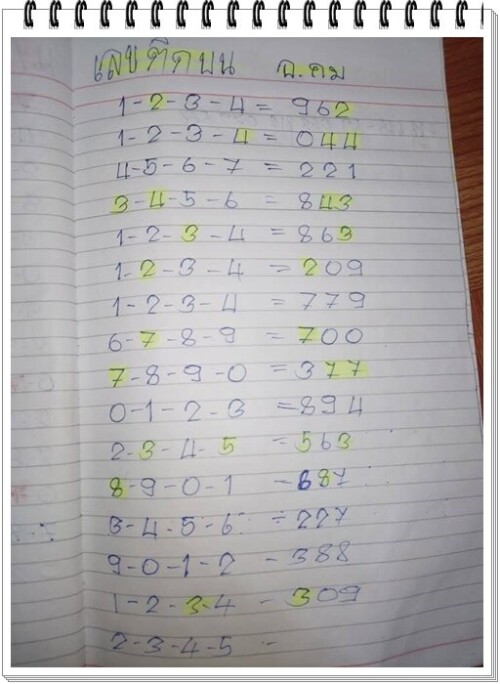 เลขติดบน ฉ.คม
1-2-3-4 = 962
1-2-3-4 = 044
4-5-6-7 = 221
3-4-5-6 = 843
1-2-3-4 = 863
1-2-3-4 = 209
1-2-3-4 = 779
6-7-8-9 = 700
7-8-9-0 = 377
0-1-2-3 = 894
2-3-4-5 = 563
8-9-0-1 - 687
3-4-5-6 = 227
9-0-1-2 - 388
1-2-3-4 - 309
2-3-4-5 -